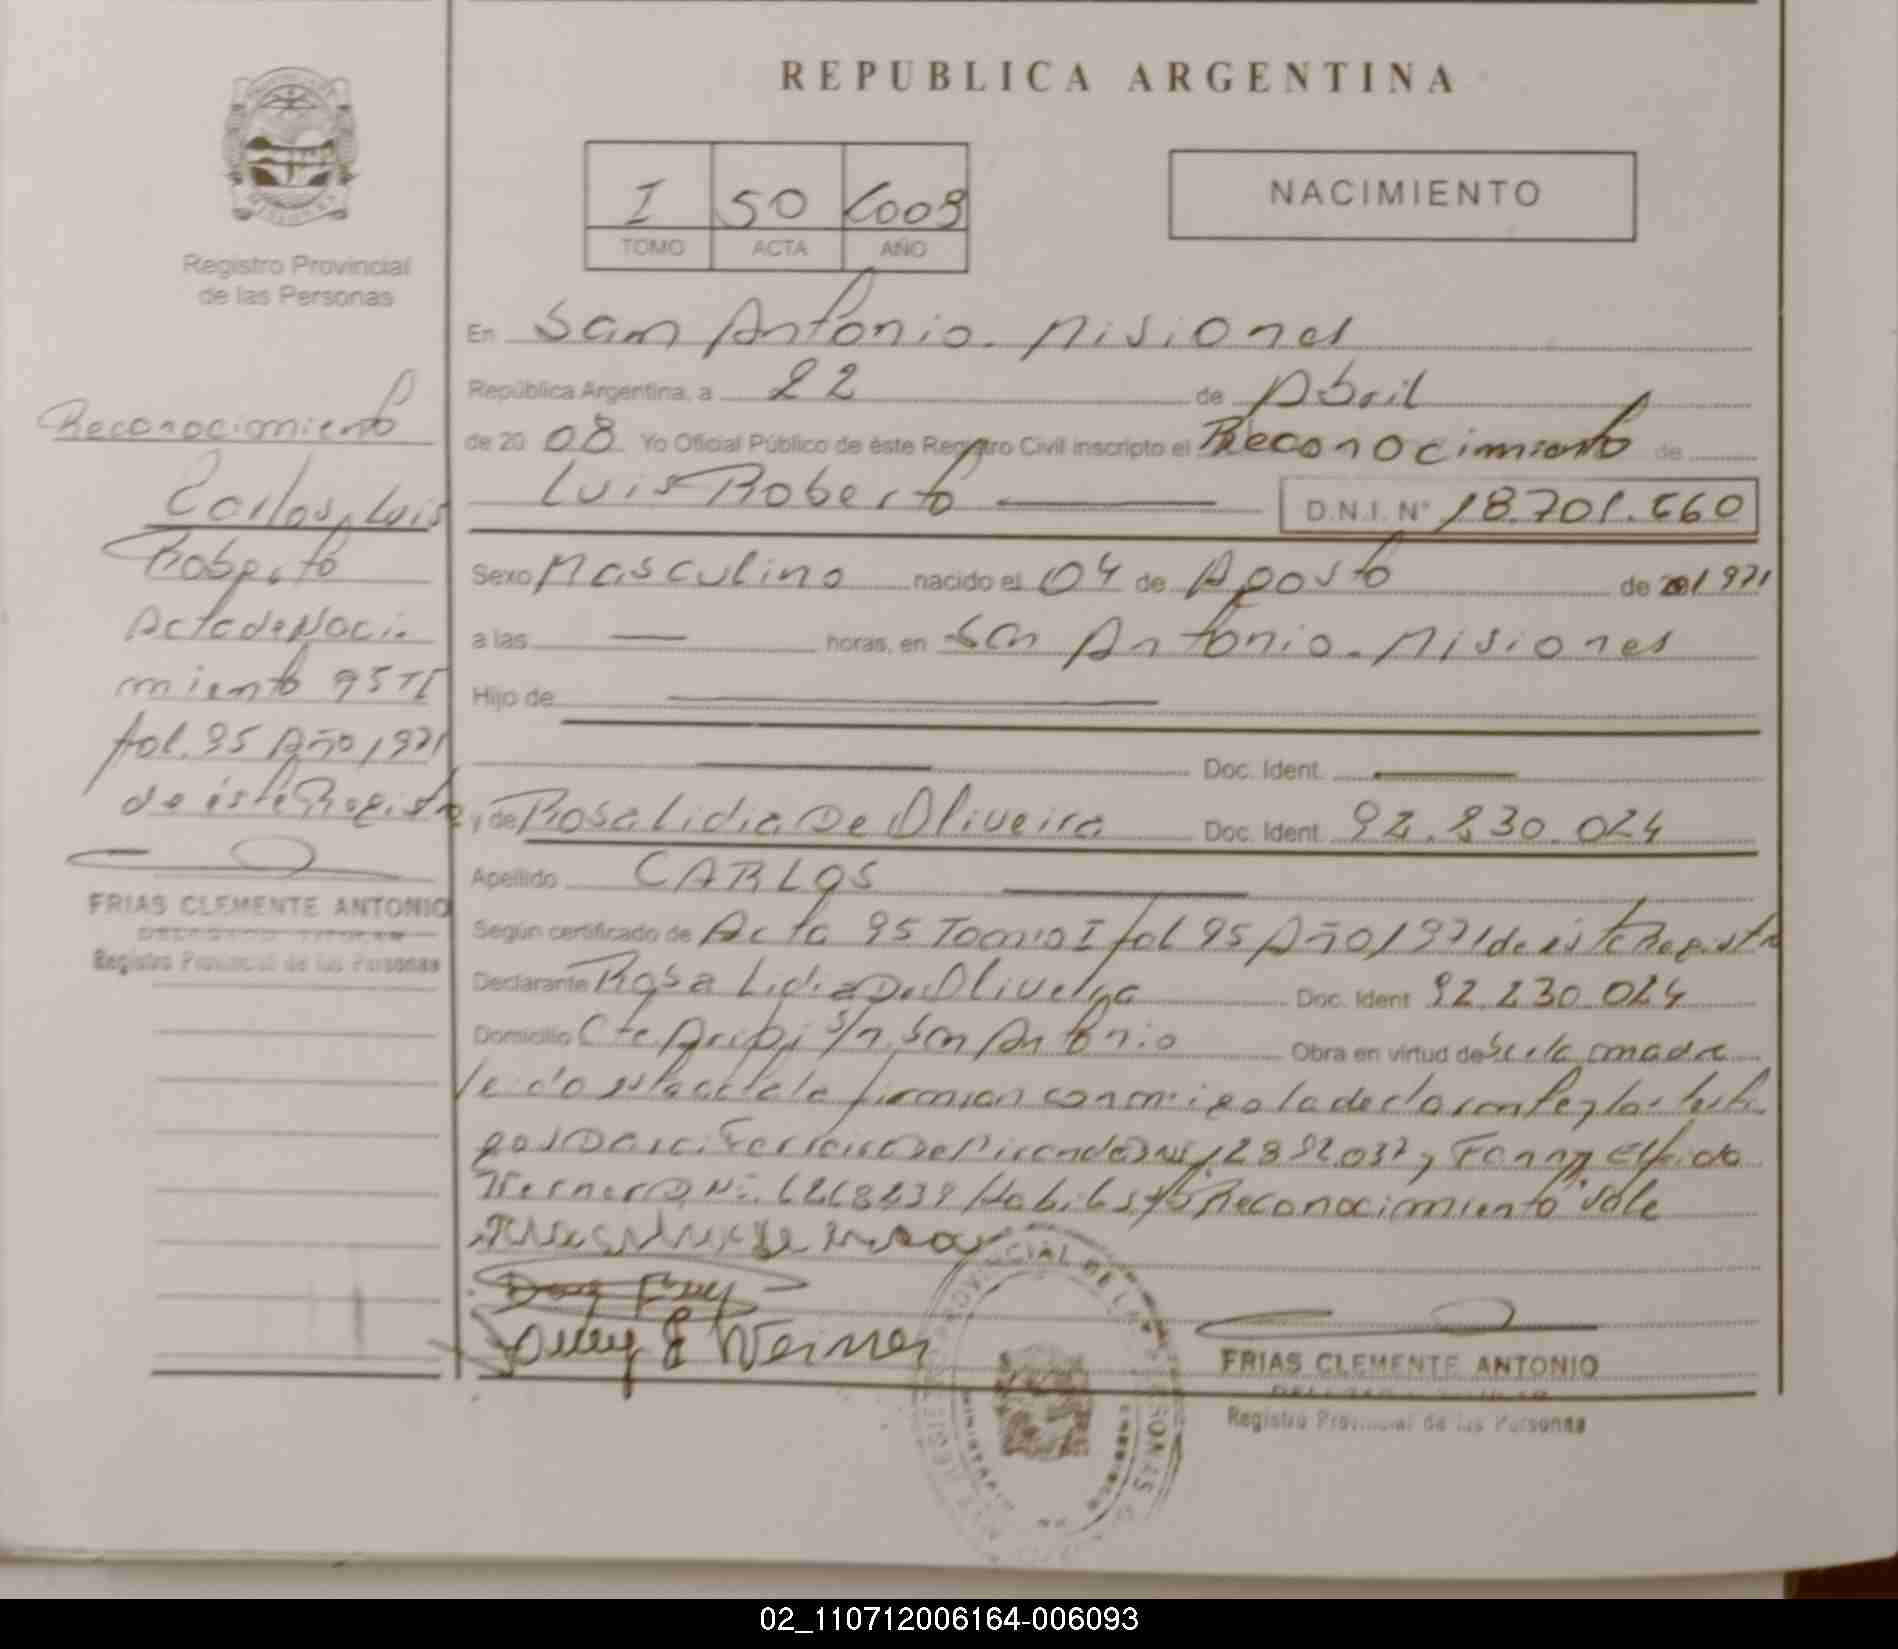 REPUBLICA ARGENTINA
I 50
TOMO ACTA AÑO
NACIMIENTO
Registro Provincial
de las Personas
Reconocimiento
Carlos, Luis
Roberto
Acta de Naci
miento 95 TI
fol. 95 Año 1971
de éste Registro
FRIAS CLEMENTE ANTONIO
DELEGADO TITULAR
Registro Provincial de las Personas
En San Antonio. Misiones
República Argentina, a 22 de Abril
de 2008. Yo Oficial Público de éste Registro Civil inscripto el Reconocimiento de
Luis Roberto D.N.I. N° 18.701.660
Sexo Masculino nacido el 04 de Agosto de 1971
a las horas, en San Antonio. Misiones
Hijo de
Doc. Ident.
y de Rosa Lidia De Oliveira Doc. Ident. 92.230.024
Apellido CARLOS
Según certificado de Acta 95 Tomo I fol 95 Año 1971 de éste Registro
Declarante Rosa Lidia De Oliveira Doc. Ident 92.230.024
Domicilio Cte. s/n. San Antonio Obra en virtud de ser la madre
leido esta acta la firman conmigo la declarante y los testi
gos De y Fanny Elfrida
Werner Reconocimiento vale
Fanny E Werner
FRIAS CLEMENTE ANTONIO
DELEGADO TITULAR
Registro Provincial de las Personas
02_110712006164-006093